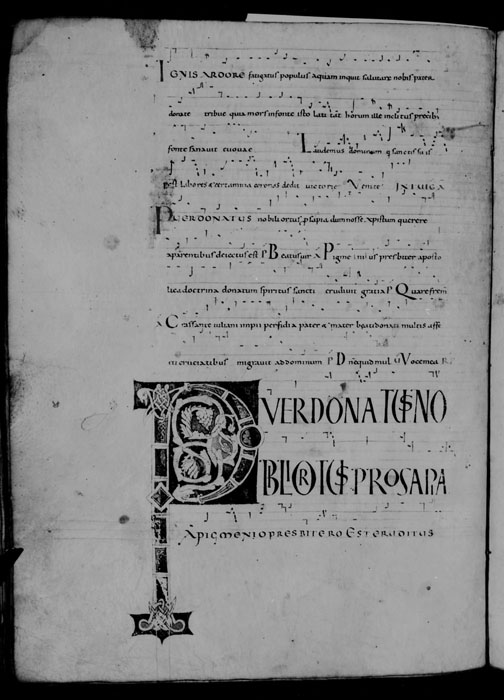 IGNIS ARDORE fatigatus populus aquam inquit salutare nobis pater
donate tribue quia mors in fonte isto latitat horum ille inclitus precib;
fonte sanavit euouae Laudemus dominum q sanctis suis
post labores & certamina coronas dedit victorie Venite IN IUIGA
PUER DONATUS nobili ortus psapia dum nosse xpistum querere
a parentibus deiectus est Ps Beatus uir A Pigmenius presbiter aposto
lica doctrina donatum spiritus sancti erudiuit gratia Ps Quare frem
A Crassante iuliani impii perfidia pater & mater beati donati multis affe
cti cruciatibus migrauit ad dominum Ps Dne quid mul V Voce mea R
PUER DONATUS NO
BILI ORTUS PROSAPIA
A PIGMENIO PRESBITERO EST ERUDITUS